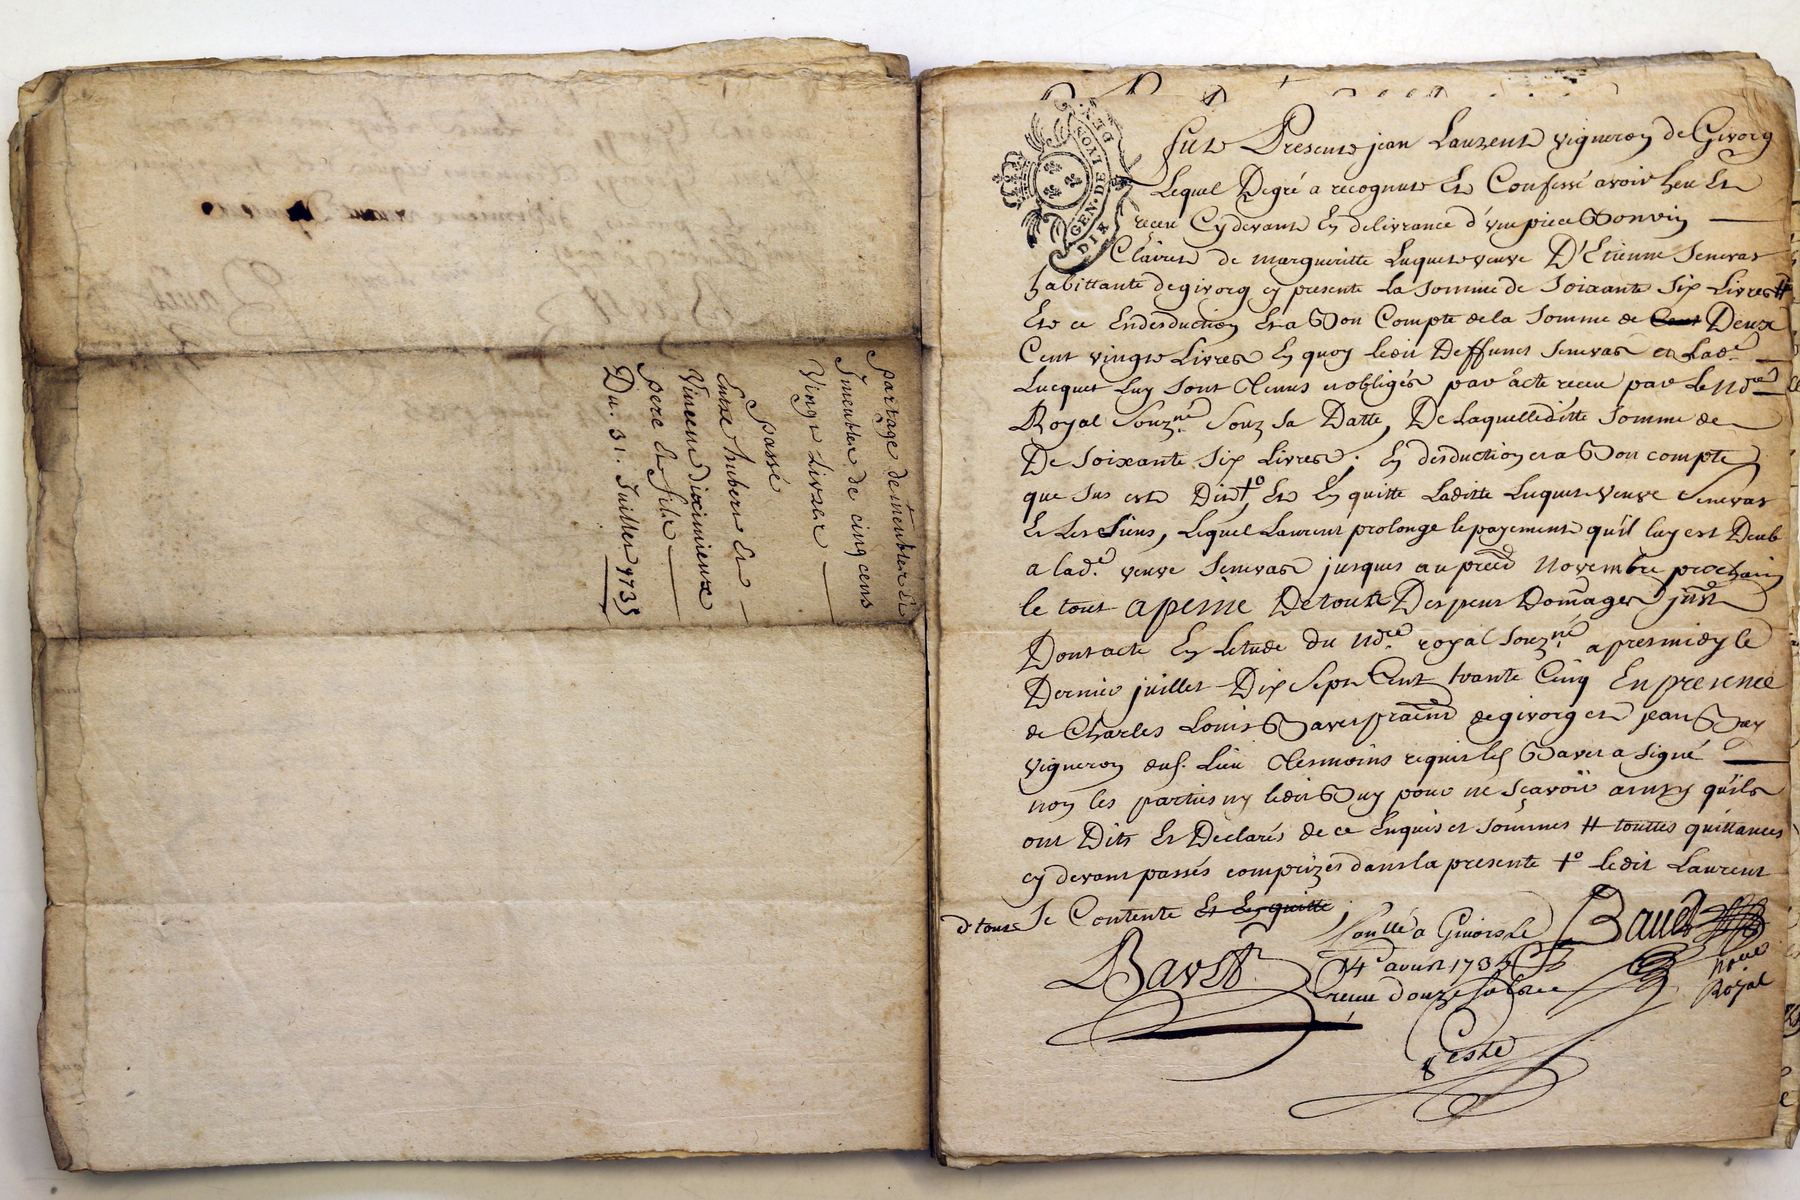 partage de meubles et
Immeubles de cinq cens
Vingt Livres
passé
Entre Hubert et
Vincent Dixcimieux
pere et fils
Du. 31. Juillet 1735
GEN. DE LYON
DIX DEN
fut Presente jean Laurent vigneron de Givorg
Lequel Degré a recognut Et Confessé avoir heu Et
reçeu Cydevant En delivrance d'une piece Bon vin
Clairet de margueritte Luquet veuve D'Etienne Senevas
habittante de givorg cy presente La Somme de Soixante Six Livres #
Et ce En desduction Et a Bon Compte de la Somme de Cent Deux
Cent vingt Livres En quoy ledit Deffunct Senevas et Lad.e
Lucquet Luy Sont Tenus et obligés par acte receu par Le No.re
Royal Souz.né Souz Sa Datte, De Laquelleditte Somme de
De Soixante Six Livres; En desduction et a Bon compte
que Sus est Dit †o, Et En quitte Laditte Luquet veuve Senevas
Et Les Siens, Lequel Laurent prolonge le payement qu'il luy est Deub
a lad.e veuve Senevas jusques au Novembre prochain
le tout a peine De toutt Despens Domages
Dont acte En Letude du No.re royal Souz.né apresmidy le
Dernier juillet Dix Sept Cent trante Cinq En presence
de Charles Louis Bavet de givorg et jean
vigneron dud. Lieu Tesmoins requis led Bavet a Signé
non les parties ny ledit pour ne Sçavoir ainsy qu'ils
ont Dit Et Declarés de ce Enquis et Sommés # touttes quittances
cy devant passés comprizes dans la presente †o ledit Laurent
Se Contente Et Les quitte
Bavet
a Givors Le
14e 1735
receu douze Sols
Bavet
No.re
Royal